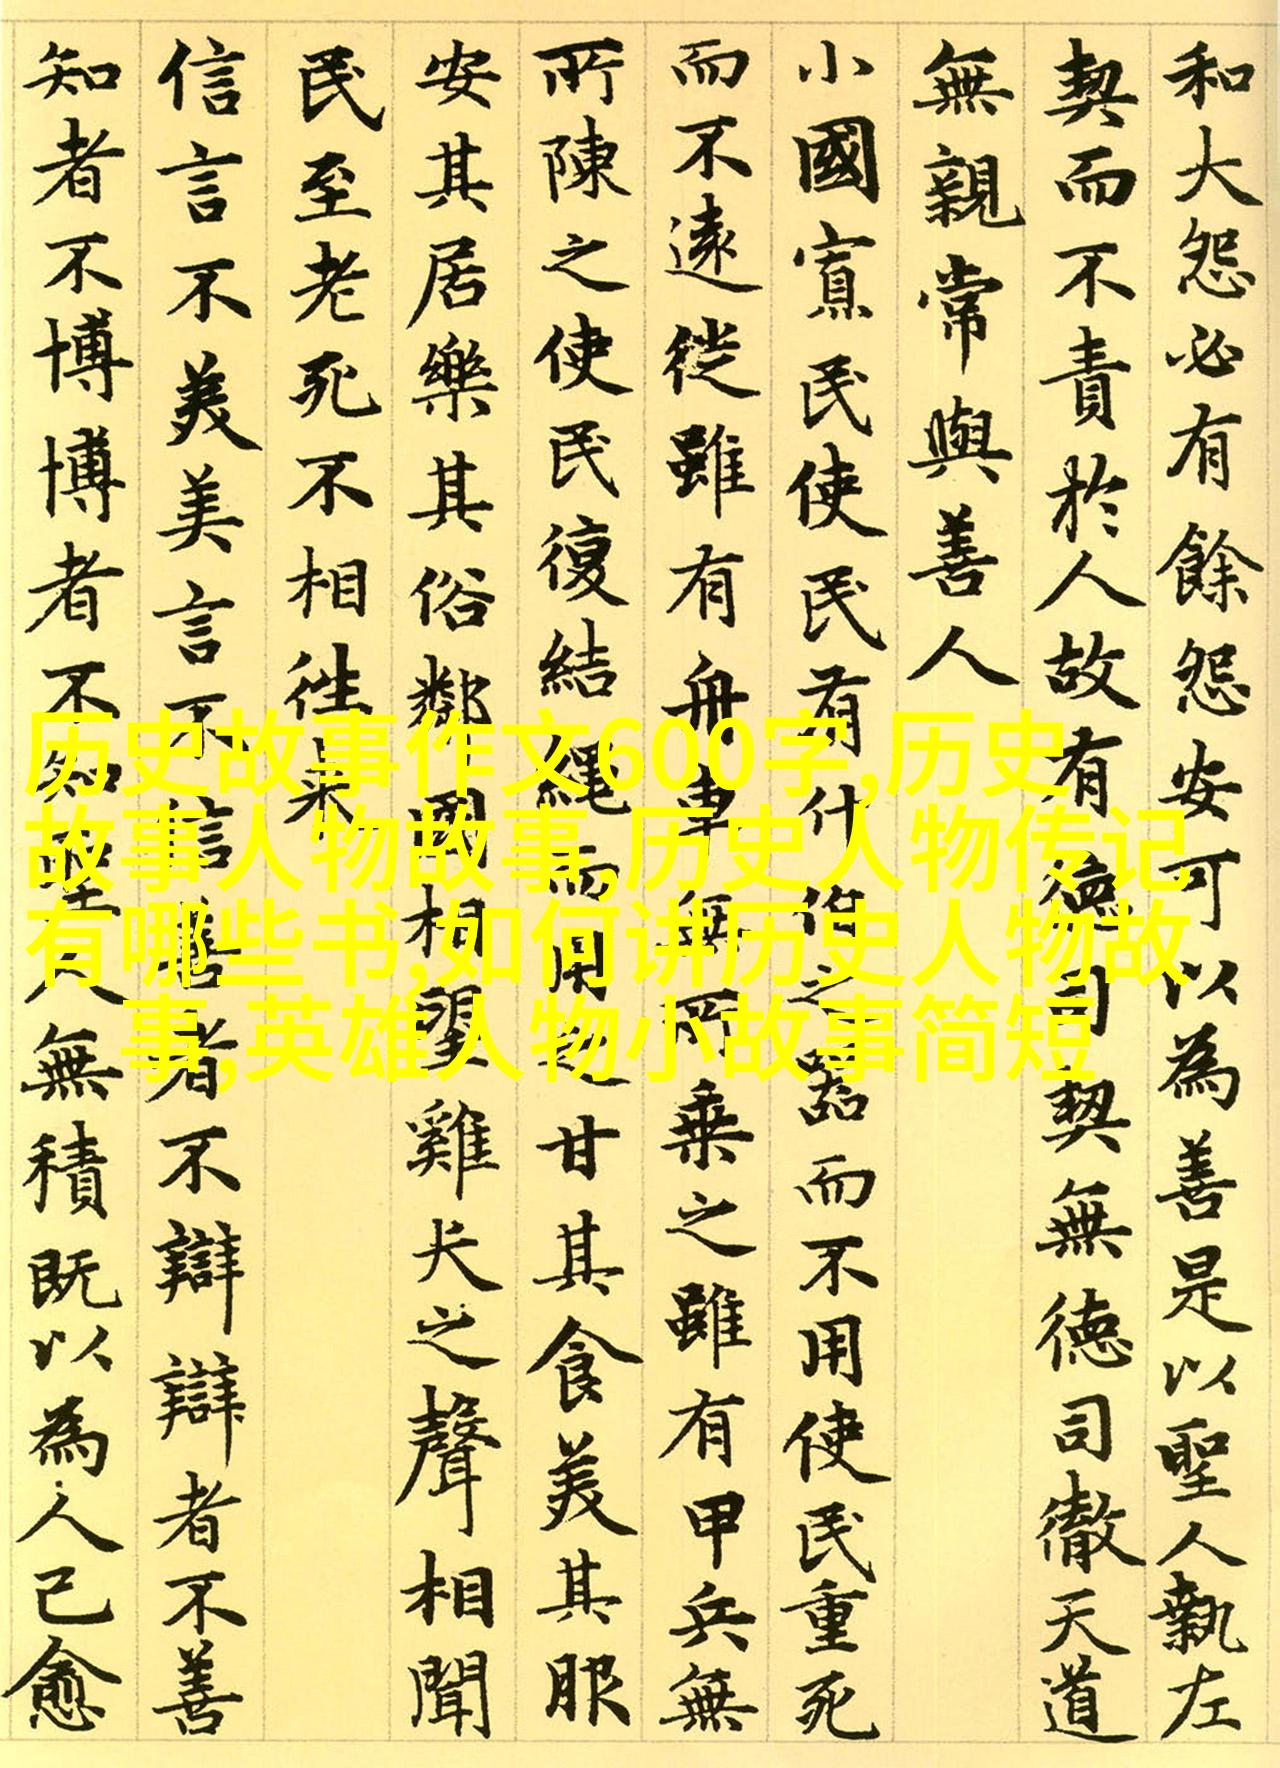 和大怨必有餘怨安可以為善是以聖人執左
契而不責於人故有德司契無德司徹天道
無親常與善人
小國寡民使民有什伯之器而不用使民重死
而不遠徙雖有舟車無所乘之雖有甲兵無
所陳之使民復結繩而用之甘其食美其服
安其居樂其俗鄰國相望雞犬之聲相聞
民至老死不相往来
信言不美美言不信善者不辯辯者不善
知者不博博者不知聖人無積既以為人己愈
历史故事作文600字,历史
故事人物故事,历史人物传记
有哪些书,如何讲历史人物故
事,英雄人物小故事简短